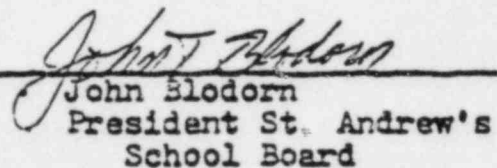 John T Blodorn
John Blodorn
President St. Andrew's
School Board